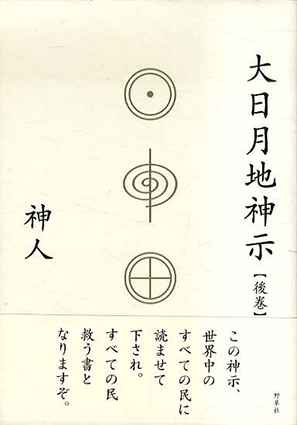 大日月地神示【後巻】
神人
この神示、
世界中の
すべての民に
読ませて
下され。
すべての民
救う書と
なりますぞ。
野草社